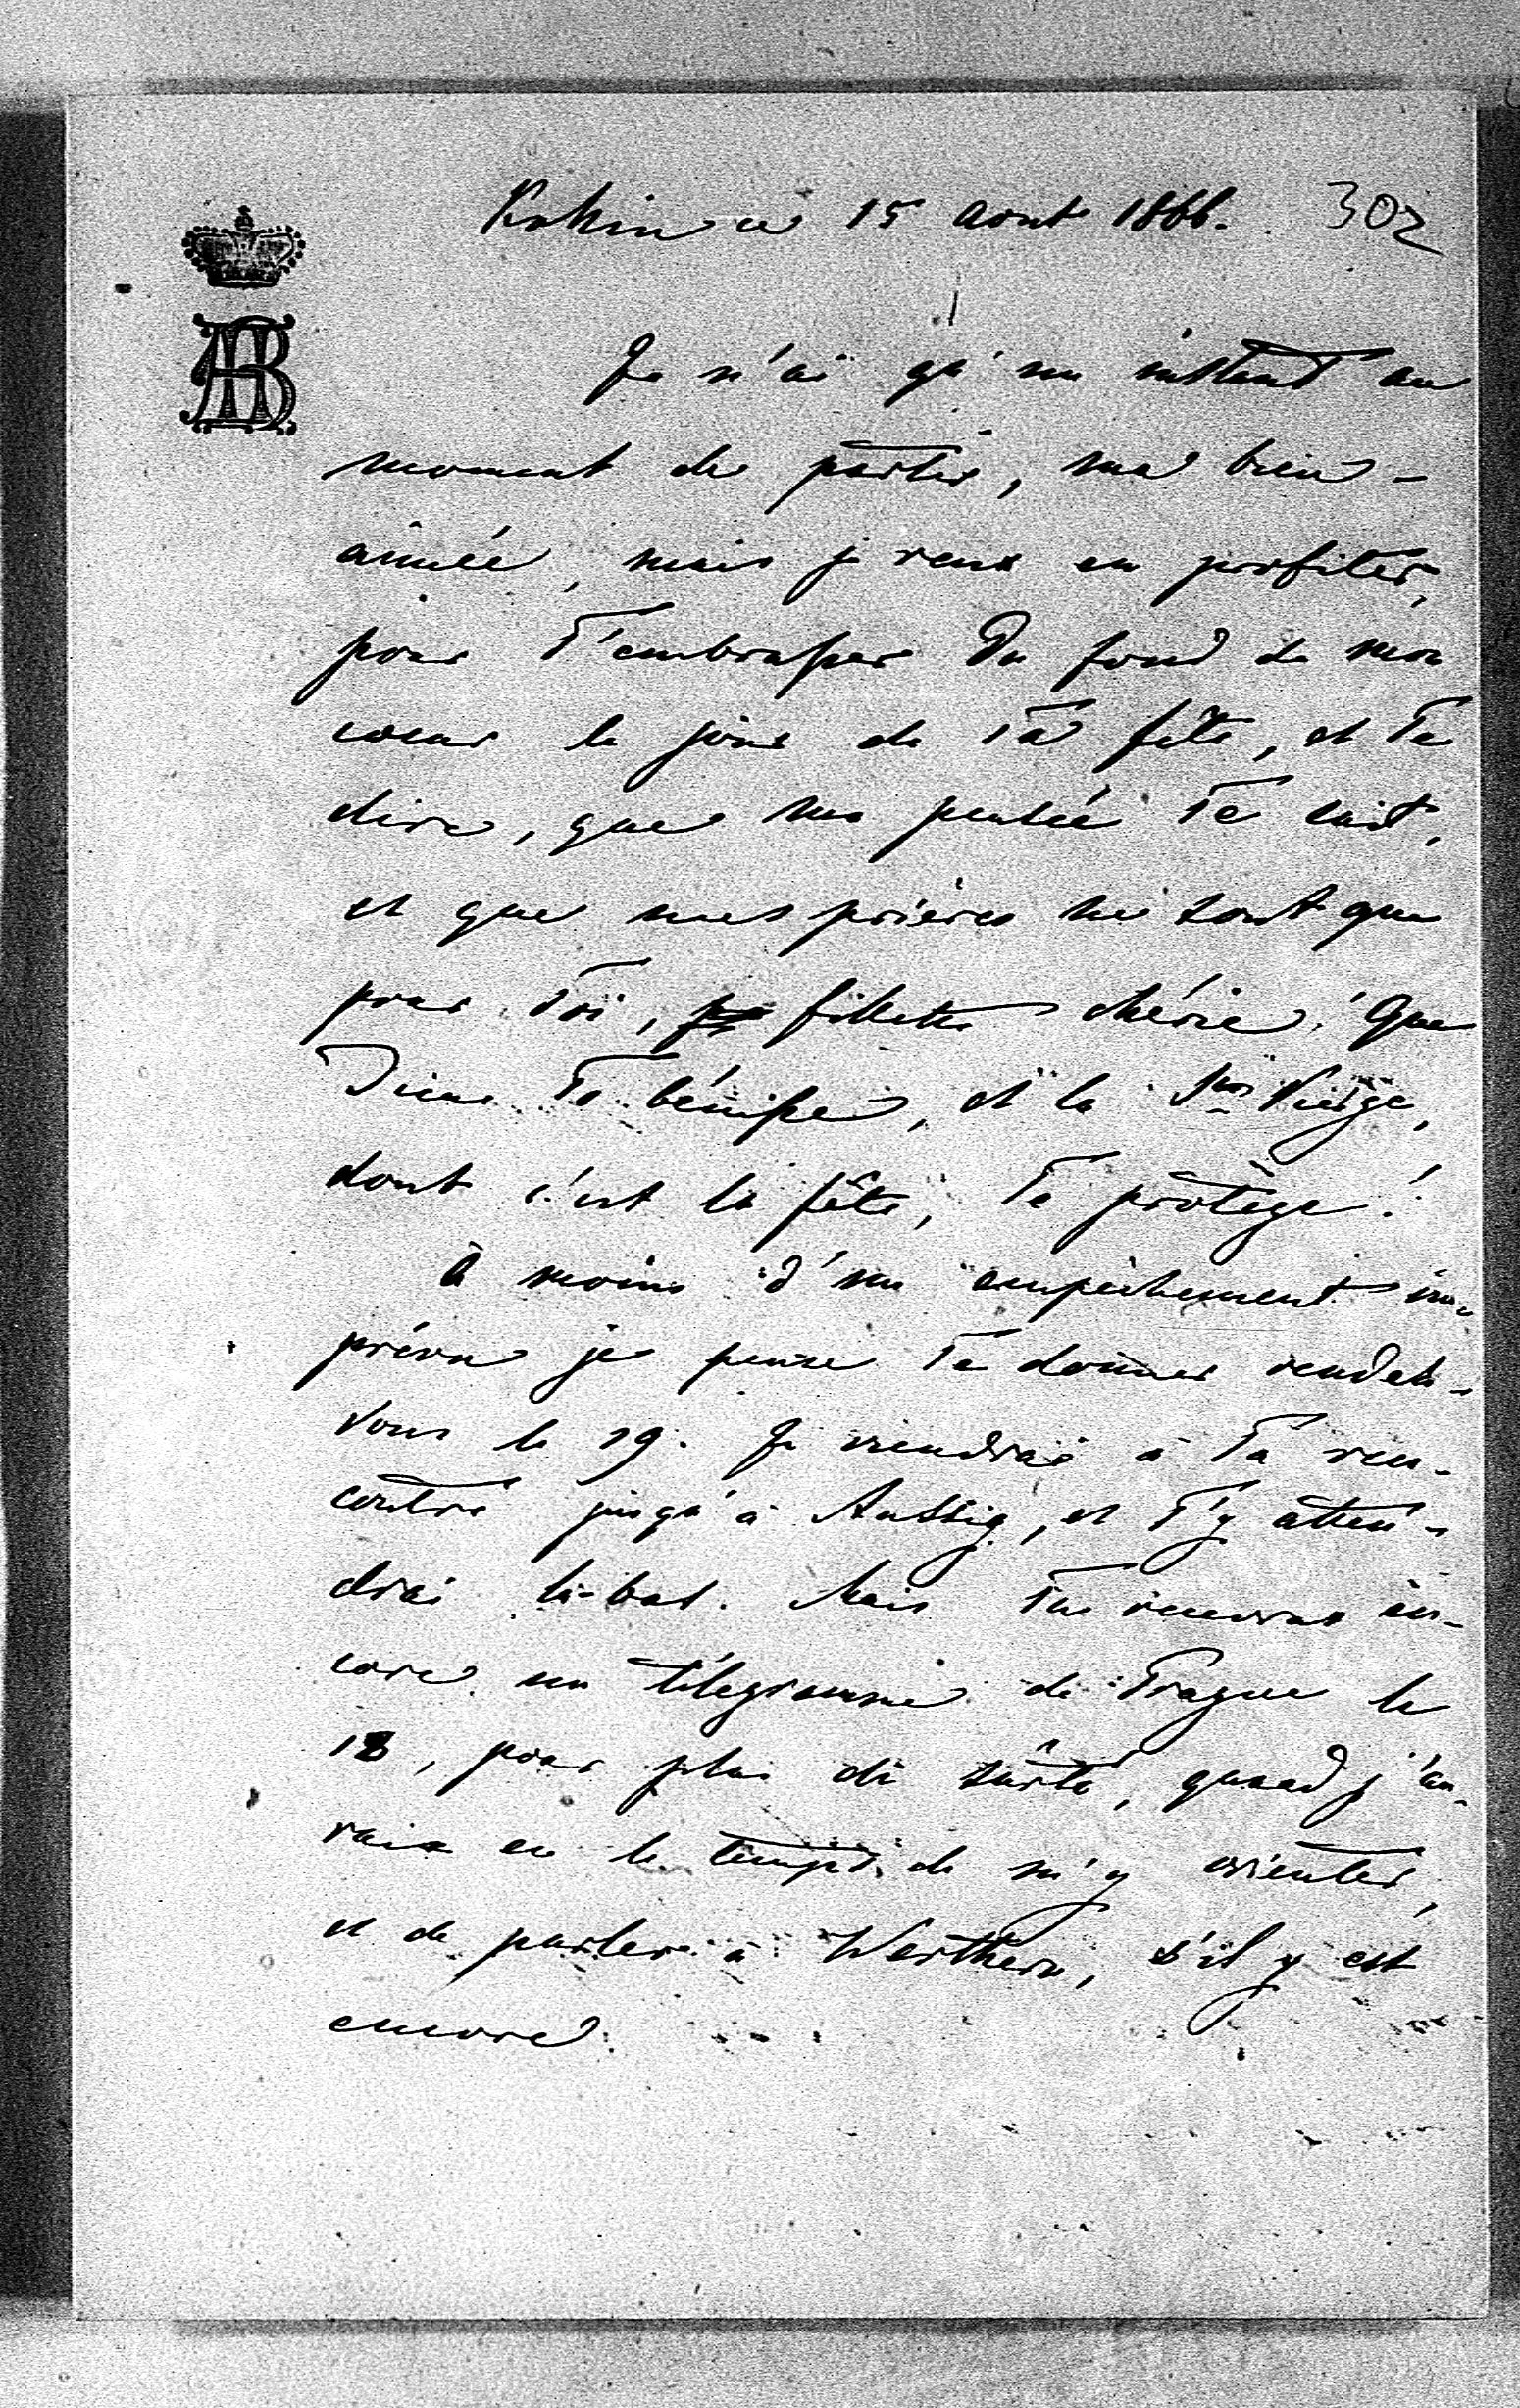 ce 15 aout 1866. 302
Je n'ai qu'un instant au
moment de partir, ma bien-
aimée, mais je veux en profiter,
pour T'embrasser du fond de mon
coeur le jour de Ta fête, et Te
dire, que ma pensée Te suit,
et que mes prières ne sont que
pour Toi, fillette chérie! Que
Dieu Te bénisse, et la Ste Vierge,
dont c'est la fête, Te protège!
à moins d'un empêchement im-
prévu je pense Te donner rendez-
vous le 19. Je viendrai à Ta ren-
contre jusqu'à Aussig, et T'y atten-
drai là-bas. Mais Tu recevras en-
core un télégramme de Prague le
18, pour plus de sûrté, quand j'au-
rais eu le temps de m'y orienter,
et de parler à Werthern, s'il y est
encore.